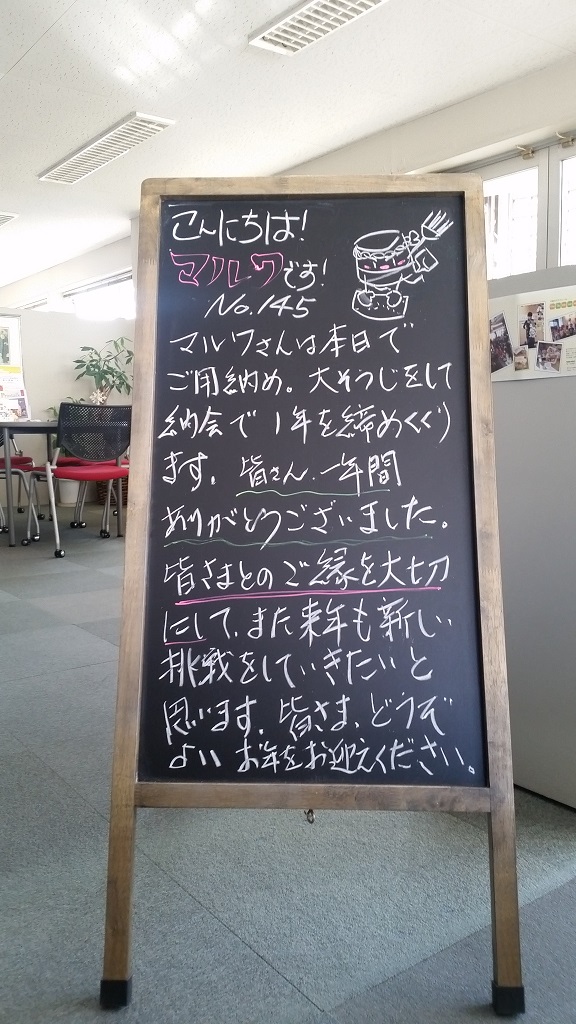 こんにちは!
マルワです!
No.145
マルワさんは本日で
ご用納め。大そうじをして
納会で1年を締めくくり
ます。皆さん、一年間
ありがとうございました。
皆さまとのご縁を大切
にして、また来年も新しい
挑戦をしていきたいと
思います。皆さま、どうぞ
よいお年をお迎えください。